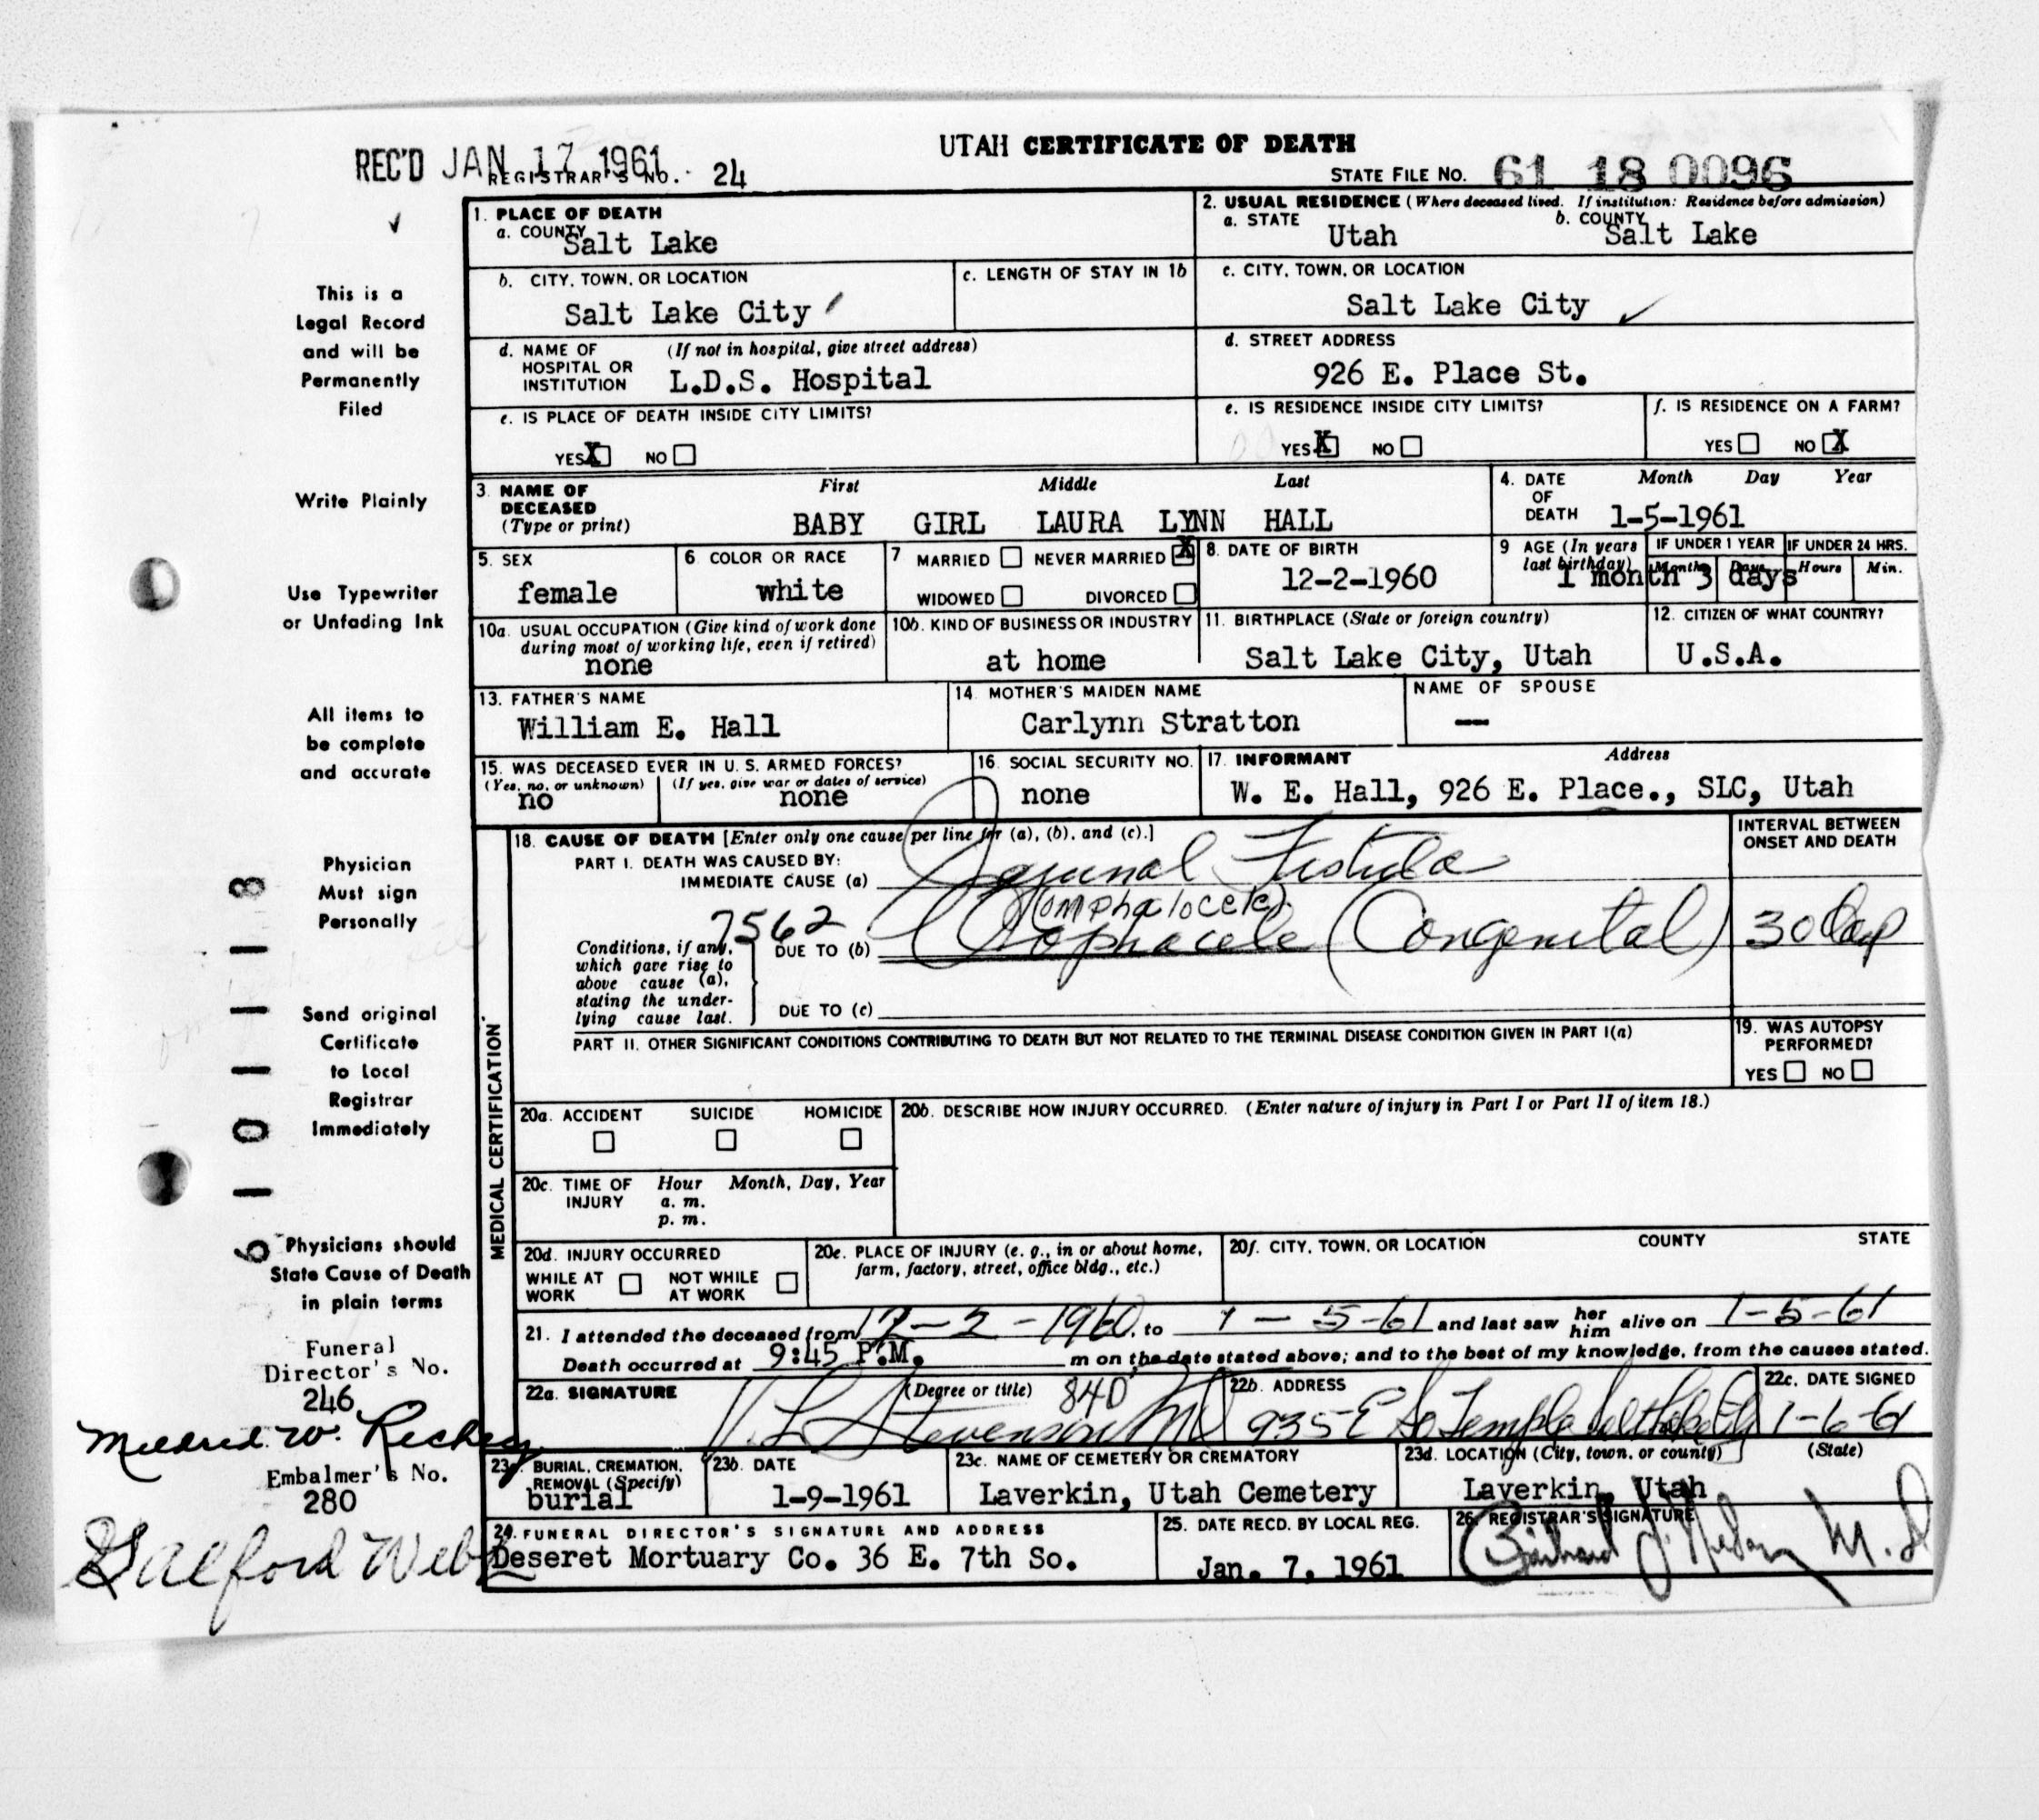 UTAH CERTIFICATE OF DEATH
REC'D JAN 17 1961
REGISTRAR'S NO. 24
STATE FILE NO. 61 18 0096
1. PLACE OF DEATH
a. COUNTY
Salt Lake
2. USUAL RESIDENCE (Where deceased lived. If institution: Residence before admission)
a. STATE
Utah
b. COUNTY
Salt Lake
b. CITY, TOWN, OR LOCATION
Salt Lake City
c. LENGTH OF STAY IN 1b
c. CITY, TOWN, OR LOCATION
Salt Lake City
d. NAME OF HOSPITAL OR INSTITUTION (If not in hospital, give street address)
L.D.S. Hospital
d. STREET ADDRESS
926 E. Place St.
e. IS PLACE OF DEATH INSIDE CITY LIMITS?
YES X NO
e. IS RESIDENCE INSIDE CITY LIMITS?
YES X NO
f. IS RESIDENCE ON A FARM?
YES NO X
3. NAME OF DECEASED (Type or print)
First Middle Last
BABY GIRL LAURA LYNN HALL
4. DATE OF DEATH Month Day Year
1-5-1961
5. SEX
female
6 COLOR OR RACE
white
7 MARRIED NEVER MARRIED X
WIDOWED DIVORCED
8. DATE OF BIRTH
12-2-1960
9 AGE (In years last birthday)
IF UNDER 1 YEAR
Months Days
IF UNDER 24 HRS.
Hours Min.
1 month 3 days
10a. USUAL OCCUPATION (Give kind of work done during most of working life, even if retired)
none
10b. KIND OF BUSINESS OR INDUSTRY
at home
11. BIRTHPLACE (State or foreign country)
Salt Lake City, Utah
12. CITIZEN OF WHAT COUNTRY?
U.S.A.
13. FATHER'S NAME
William E. Hall
14. MOTHER'S MAIDEN NAME
Carlynn Stratton
NAME OF SPOUSE
—
15. WAS DECEASED EVER IN U. S. ARMED FORCES?
(Yes, no, or unknown) (If yes, give war or dates of service)
no none
16. SOCIAL SECURITY NO.
none
17. INFORMANT Address
W. E. Hall, 926 E. Place., SLC, Utah
MEDICAL CERTIFICATION
18. CAUSE OF DEATH [Enter only one cause per line for (a), (b), and (c).]
INTERVAL BETWEEN ONSET AND DEATH
PART I. DEATH WAS CAUSED BY:
IMMEDIATE CAUSE (a) Jejunal Fistula
(omphalocele)
7562
Conditions, if any, which gave rise to above cause (a), stating the underlying cause last.
DUE TO (b) (Congenital) 30 days
DUE TO (c)
PART II. OTHER SIGNIFICANT CONDITIONS CONTRIBUTING TO DEATH BUT NOT RELATED TO THE TERMINAL DISEASE CONDITION GIVEN IN PART I(a)
19. WAS AUTOPSY PERFORMED?
YES NO
20a. ACCIDENT SUICIDE HOMICIDE
20b. DESCRIBE HOW INJURY OCCURRED. (Enter nature of injury in Part I or Part II of item 18.)
20c. TIME OF INJURY Hour Month, Day, Year
a. m.
p. m.
20d. INJURY OCCURRED
WHILE AT WORK NOT WHILE AT WORK
20e. PLACE OF INJURY (e. g., in or about home, farm, factory, street, office bldg., etc.)
20f. CITY, TOWN, OR LOCATION COUNTY STATE
21. I attended the deceased from 12-2-1960, to 1-5-61 and last saw her him alive on 1-5-61
Death occurred at 9:45 P.M. m on the date stated above; and to the best of my knowledge, from the causes stated.
22a. SIGNATURE (Degree or title) 840
V. L. Stevenson MD
22b. ADDRESS
935 E So Temple Salt Lake City
22c. DATE SIGNED
1-6-61
23a. BURIAL, CREMATION, REMOVAL (Specify)
burial
23b. DATE
1-9-1961
23c. NAME OF CEMETERY OR CREMATORY
Laverkin, Utah Cemetery
23d. LOCATION (City, town, or county) (State)
Laverkin, Utah
24. FUNERAL DIRECTOR'S SIGNATURE AND ADDRESS
Deseret Mortuary Co. 36 E. 7th So.
25. DATE RECD. BY LOCAL REG.
Jan. 7, 1961
26. REGISTRAR'S SIGNATURE
M.D.
This is a
Legal Record
and will be
Permanently
Filed
Write Plainly
Use Typewriter
or Unfading Ink
All items to
be complete
and accurate
Physician
Must sign
Personally
Send original
Certificate
to Local
Registrar
Immediately
Physicians should
State Cause of Death
in plain terms
Funeral
Director's No.
246
Mildred W.
Embalmer's No.
280
Galford Webb